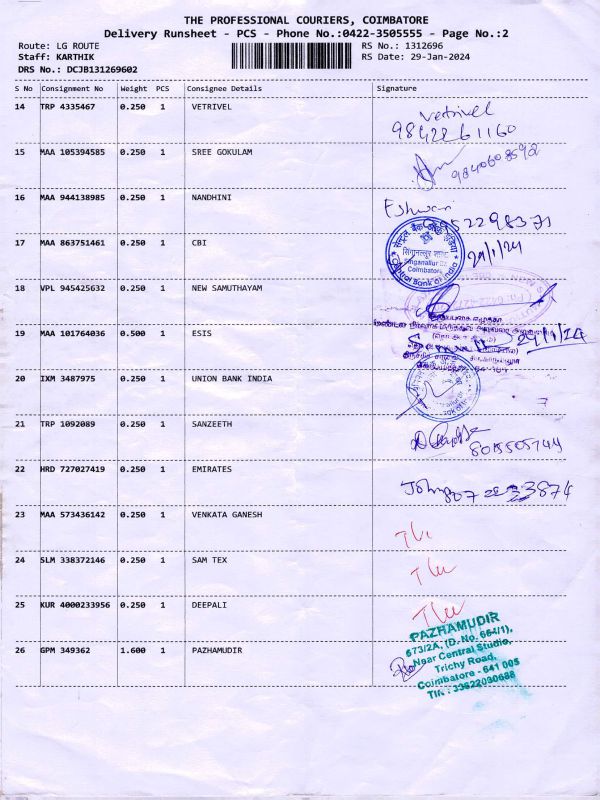 THE PROFESSIONAL COURIERS, COIMBATORE
Delivery Runsheet - PCS - Phone No.:0422-3505555 - Page No.:2
Route: LG ROUTE RS No.: 1312696
Staff: KARTHIK RS Date: 29-Jan-2024
DRS No.: DCJB131269602
S No Consignment No Weight PCS Consignee Details Signature
14 TRP 4335467 0.250 1 VETRIVEL Vetrivel
9842261160
15 MAA 105394585 0.250 1 SREE GOKULAM 9840608592
16 MAA 944138985 0.250 1 NANDHINI Eshwari
17 MAA 863751461 0.250 1 CBI 29/1/24
सेन्ट्रल बैंक ऑफ इंडिया
Singanallur Br.
Coimbatore
Central Bank of India
18 VPL 945425632 0.250 1 NEW SAMUTHAYAM
19 MAA 101764036 0.500 1 ESIS 29/1/24
20 IXM 3487975 0.250 1 UNION BANK INDIA
21 TRP 1092089 0.250 1 SANZEETH 8015505744
22 HRD 727027419 0.250 1 EMIRATES John
23 MAA 573436142 0.250 1 VENKATA GANESH
24 SLM 338372146 0.250 1 SAM TEX
25 KUR 4000233956 0.250 1 DEEPALI
26 GPM 349362 1.600 1 PAZHAMUDIR PAZHAMUDIR
673/2A, (D. No. 664/1),
Near Central Studio,
Trichy Road,
Coimbatore - 641 005
TIN : 33622030688